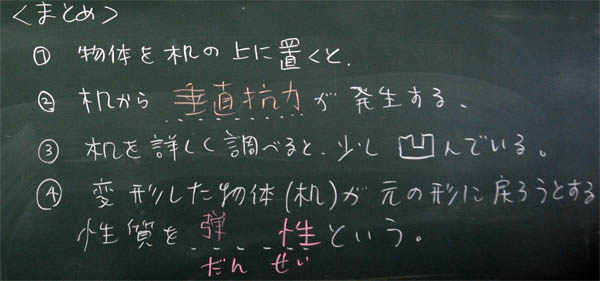 <まとめ>
① 物体を机の上に置くと、
② 机から 垂直抗力 が 発生する、
③ 机を詳しく調べると、少し 凹んでいる。
④ 変形した物体(机)が 元の形に戻ろうとする
性質を 弾 性 という。
だん せい